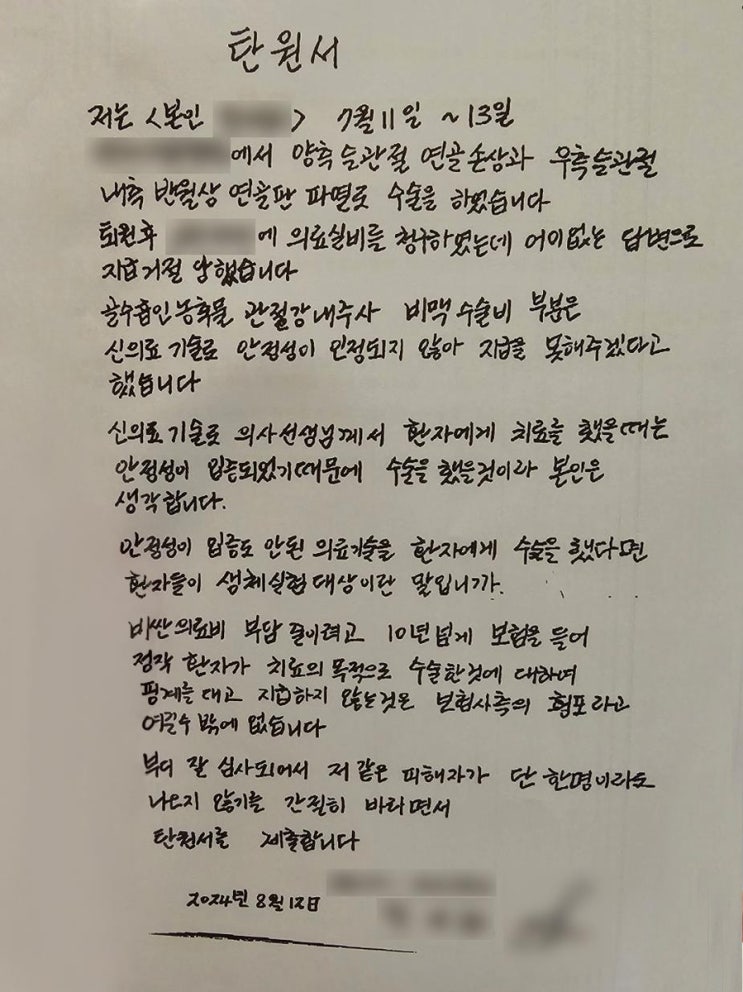 탄원서
저는 <본인 > 7월 11일 ~ 13일
에서 양측 슬관절 연골손상과 우측슬관절
내측 반월상 연골판 파열로 수술을 하였습니다
퇴원후 에 의료실비를 청구하였는데 어이없는 답변으로
지급거절 당했습니다
골수흡인농축물 관절강내주사 비맥 수술비 부분은
신의료 기술로 안정성이 인정되지 않아 지급을 못해주겠다고
했습니다
신의료기술로 의사선생님께서 환자에게 치료를 했을때는
안정성이 입증되었기때문에 수술을 했을것이라 본인은
생각합니다.
안정성이 입증도 안된 의료기술을 환자에게 수술을 했다면
환자들이 생체실험대상이란 말입니까.
비싼의료비 부담 줄이려고 10년넘게 보험을 들어
정작 환자가 치료의 목적으로 수술한것에 대하여
핑계를 대고 지급하지 않는것은 보험사측의 횡포라고
여길수 밖에 없습니다
부디 잘 심사되어서 저 같은 피해자가 단 한명이라도
나오지 않기를 간절히 바라면서
탄원서를 제출합니다
2024년 8월 12일